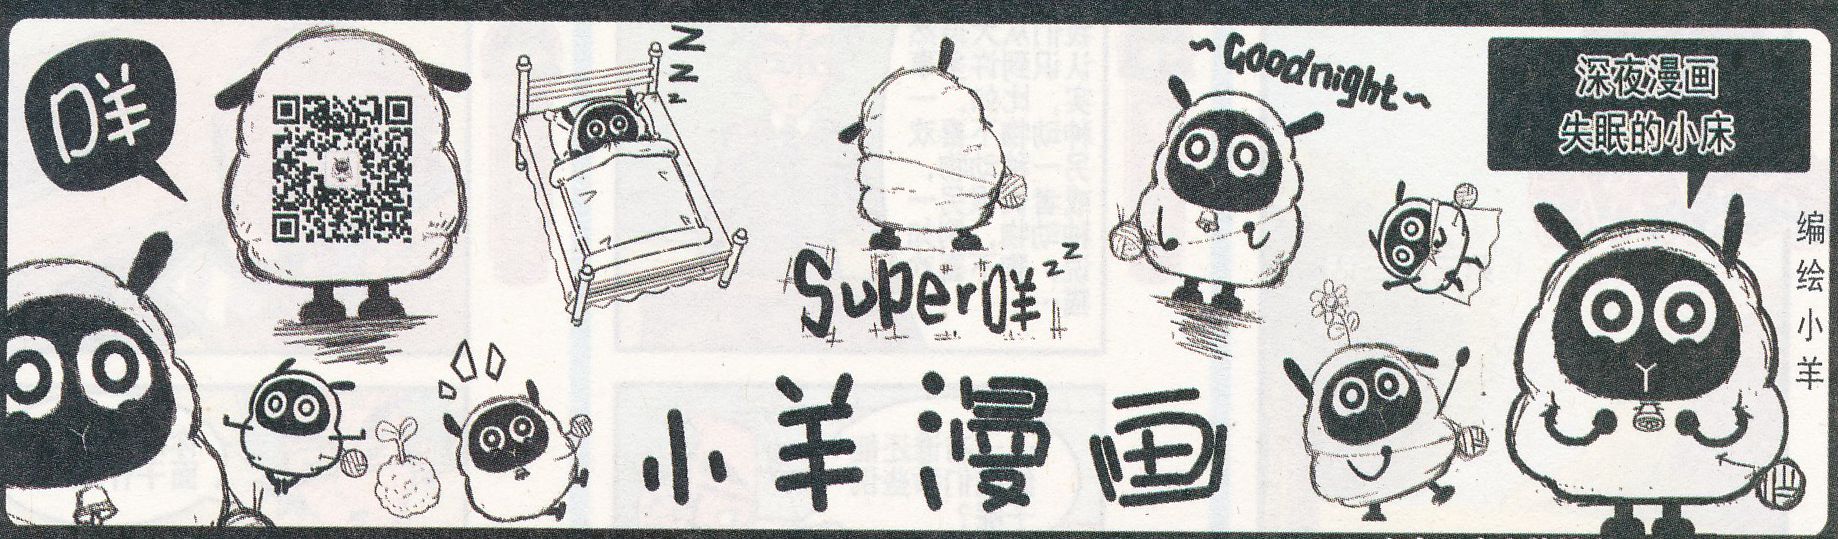 咩
zzz
~Goodnight~
深夜漫画
失眠的小床
Super咩zz
小羊漫画
编绘小羊